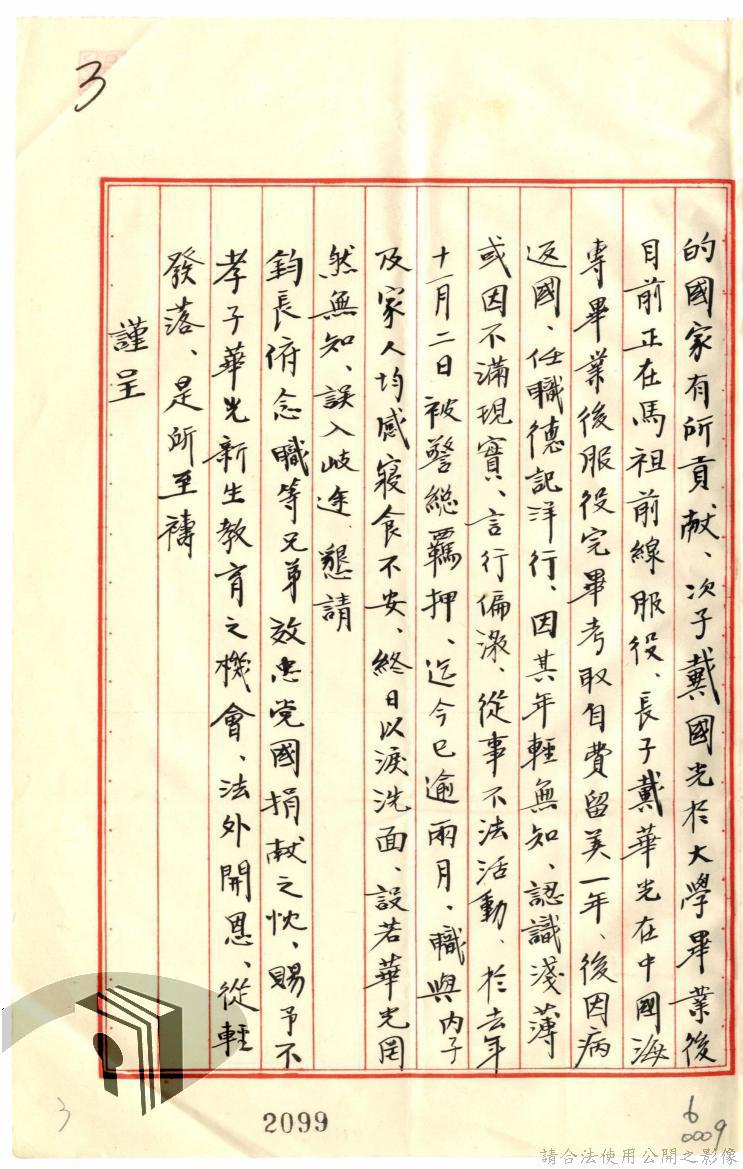 3
的國家有所貢献、次子戴國光於大學畢業後
目前正在馬祖前線服役、長子戴華光在中國海
專畢業後服役完畢考取自費留美一年、後因病
返國、任職德記洋行、因其年輕無知、認識淺薄
或因不滿現實、言行偏激、從事不法活動、於去年
十一月二日被警總羈押、迄今已逾兩月、職與內子
及家人均感寢食不安、終日以淚洗面、設若華光罔
然無知、誤入歧途 懇請
鈞長俯念職等兄弟效忠党國捐献之忱、賜予不
孝子華光新生教育之機會、法外開恩、從輕
發落、是所至禱
謹呈
3
2099
6
0009
請合法使用公開之影像